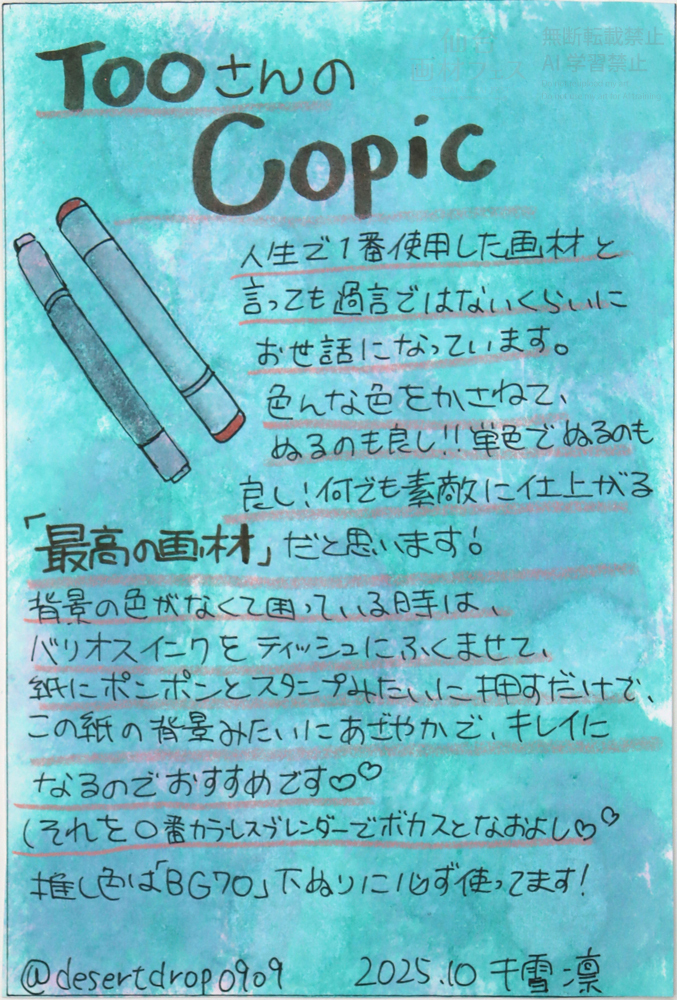 無断転載禁止
AI学習禁止
Tooさんの
Copic
人生で1番使用した画材と
言っても過言ではないくらいに
お世話になっています。
色んな色をかさねて、
ぬるのも良し!!単色でぬるのも
良し!何でも素敵に仕上がる
「最高の画材」だと思います!
背景の色がなくて困っている時は、
バリオスインクをティッシュにふくませて、
紙にポンポンとスタンプみたいに押すだけで、
この紙の背景みたいにあざやかで、キレイに
なるのでおすすめです♡♡
(それを0番カラーレスブレンダーでボカスとなおよし♡♡
推し色は「BG70」下ぬりに必ず使ってます!
@desertdrop0909 2025.10 千雪凛